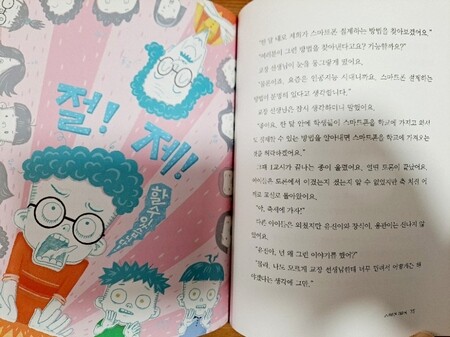 절!
제!
할 수 있습니다
"한 달 내로 저희가 스마트폰 절제하는 방법을 찾아보겠어요."
"여러분이 그런 방법을 찾아낸다고요? 가능할까요?"
교장 선생님이 눈을 동그랗게 떴어요.
"물론이죠. 요즘은 인공지능 시대니까요. 스마트폰 절제하는
방법이 분명히 있다고 생각합니다."
교장 선생님은 잠시 생각하더니 말했어요.
"좋아요. 한 달 안에 학생들이 스마트폰을 학교에 가지고 와서
도 절제할 수 있는 방법을 알아내면 스마트폰을 학교에 가져오는
것을 허락하겠어요."
그때 1교시가 끝나는 종이 울렸어요. 얼떨 토론이 끝났어요.
아이들은 토론에서 이겼는지 졌는지 알 수 없었지만 축 처진 어
깨로 교실로 돌아왔어요.
"야, 축제에 가자!"
다른 아이들은 외쳤지만 유진이와 장식이, 용관이는 신나지 않
았어요.
"유진아, 넌 왜 그런 이야기를 했어?"
"몰라. 나도 모르게 교장 선생님한테 너무 밀려서 어떻게든 해
야겠다는 생각에 그만."
77